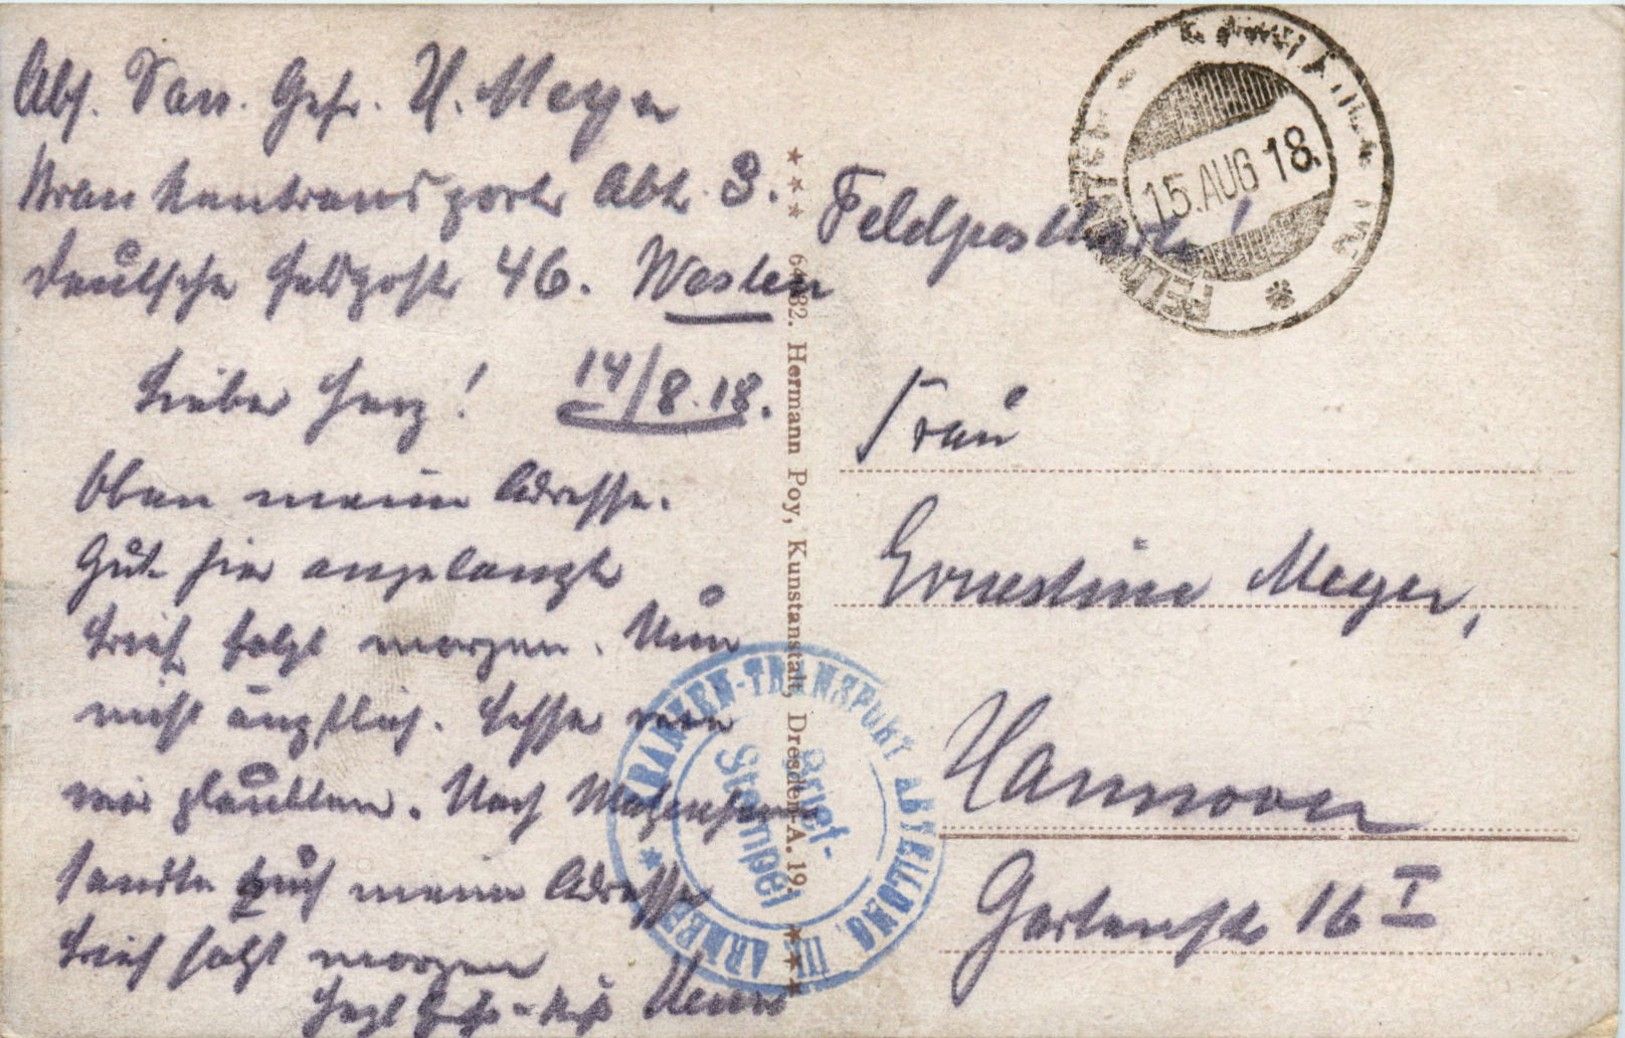 Abs. San. Gefr. H. Meyer
Krankentransport Abt. 3.
Deutsche Feldpost 46. Westen
Lieber Herz! 14/8.18.
Oben meine Adresse.
Gut hier angelangt
Brief folgt morgen. Nun
nicht ängstlich.
wir glaubten. Nach
sandte auch meine Adresse
Brief folgt morgen
Herzl Gruß-Kuß
Feldpostkarte!
15.AUG 18.
Frau
Ernestine Meyer,
Hannover
Gartenstr 16 I
64482. Hermann Poy, Kunstanstalt, Dresden-A. 19.
KRANKEN-TRANSPORT ABTEILUNG III. ARMEE
Brief-
Stempel